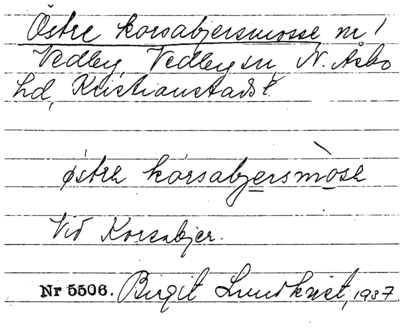 Östre korsabjersmosse, nr 1
Vedby, Vedby sn, N. Åsbo
hd, Kristianstads l.
östra korsabjersmòsa
Vid Korsabjer.
Nr 5506. Birgit Lundkvist, 1937